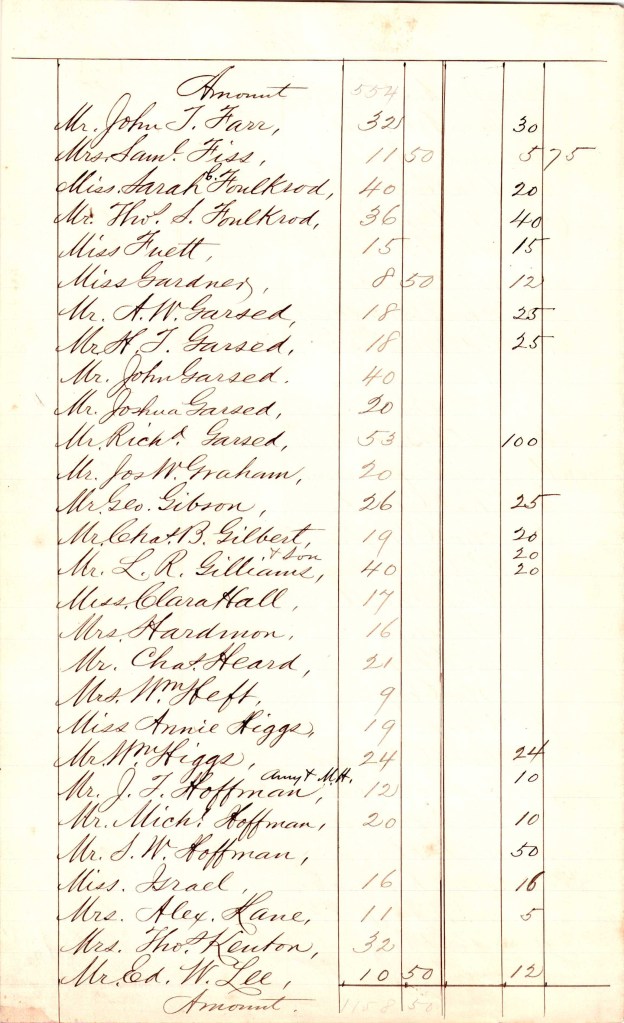 Amount 554
Mr. John T. Farr, 32 30
Mrs. Saml. Fiss, 11 50 5 75
Miss. Sarah C. Foulkrod, 40 20
Mr. Thos. S. Foulkrod, 36 40
Miss Fuett, 15 15
Miss Gardner, 8 50 12
Mr. A. W. Garsed, 18 25
Mr. H. T. Garsed, 18 25
Mr. John Garsed. 40
Mr. Joshua Garsed, 20
Mr. Richd. Garsed, 53 100
Mr. Jos W. Graham, 20
Mr. Geo. Gibson, 26 25
Mr. Chas. B. Gilbert, 19 20
+ Son 20
Mr. L. R. Gilliams, 40 20
Miss. Clara Hall, 17
Mrs. Hardmon, 16
Mr. Chas. Heard, 21
Mrs. Wm Heft, 9
Miss Annie Higgs, 19
Mr. Wm Higgs, 24 24
Amy + M.H. 10
Mr. J. T. Hoffman, 12
Mr. Michl. Hoffman, 20 10
Mr. S. W. Hoffman, 50
Miss. Israel, 16 16
Mrs. Alex. Kane, 11 5
Mrs. Thos. Kenton, 32
Mr. Ed. W. Lee, 10 50 12
Amount. 1158 50